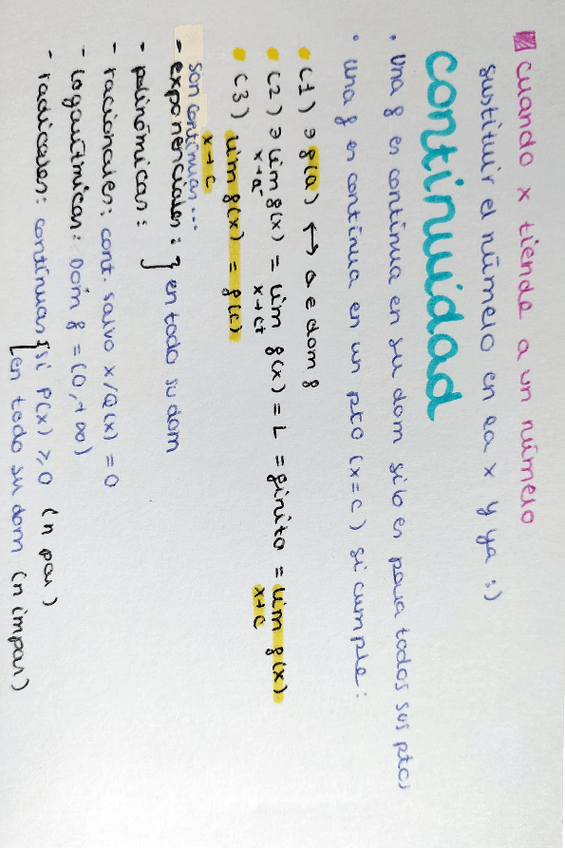 cuando x tiende a un número
sustituir el número en la x y ya :)
continuidad
• Una f es continua en su dom si lo es para todos sus ptos
• una f es continua en un pto (x=c) si cumple:
• C1) ∃ f(a) ↔ a ∈ dom f
• C2) ∃ lim f(x) = lim f(x) = L = finito = lim f(x)
x→a⁻ x→c+ x→c
• C3) lim f(x) = f(c)
x→c
son continuas...
- exponenciales: } en todo su dom
- polinómicas:
- racionales: cont. salvo x/Q(x) = 0
- logarítmicas: Dom f = (0,+∞)
- radicales: continuas [si P(x) ≥ 0 (n par)
[en todo su dom (n impar)